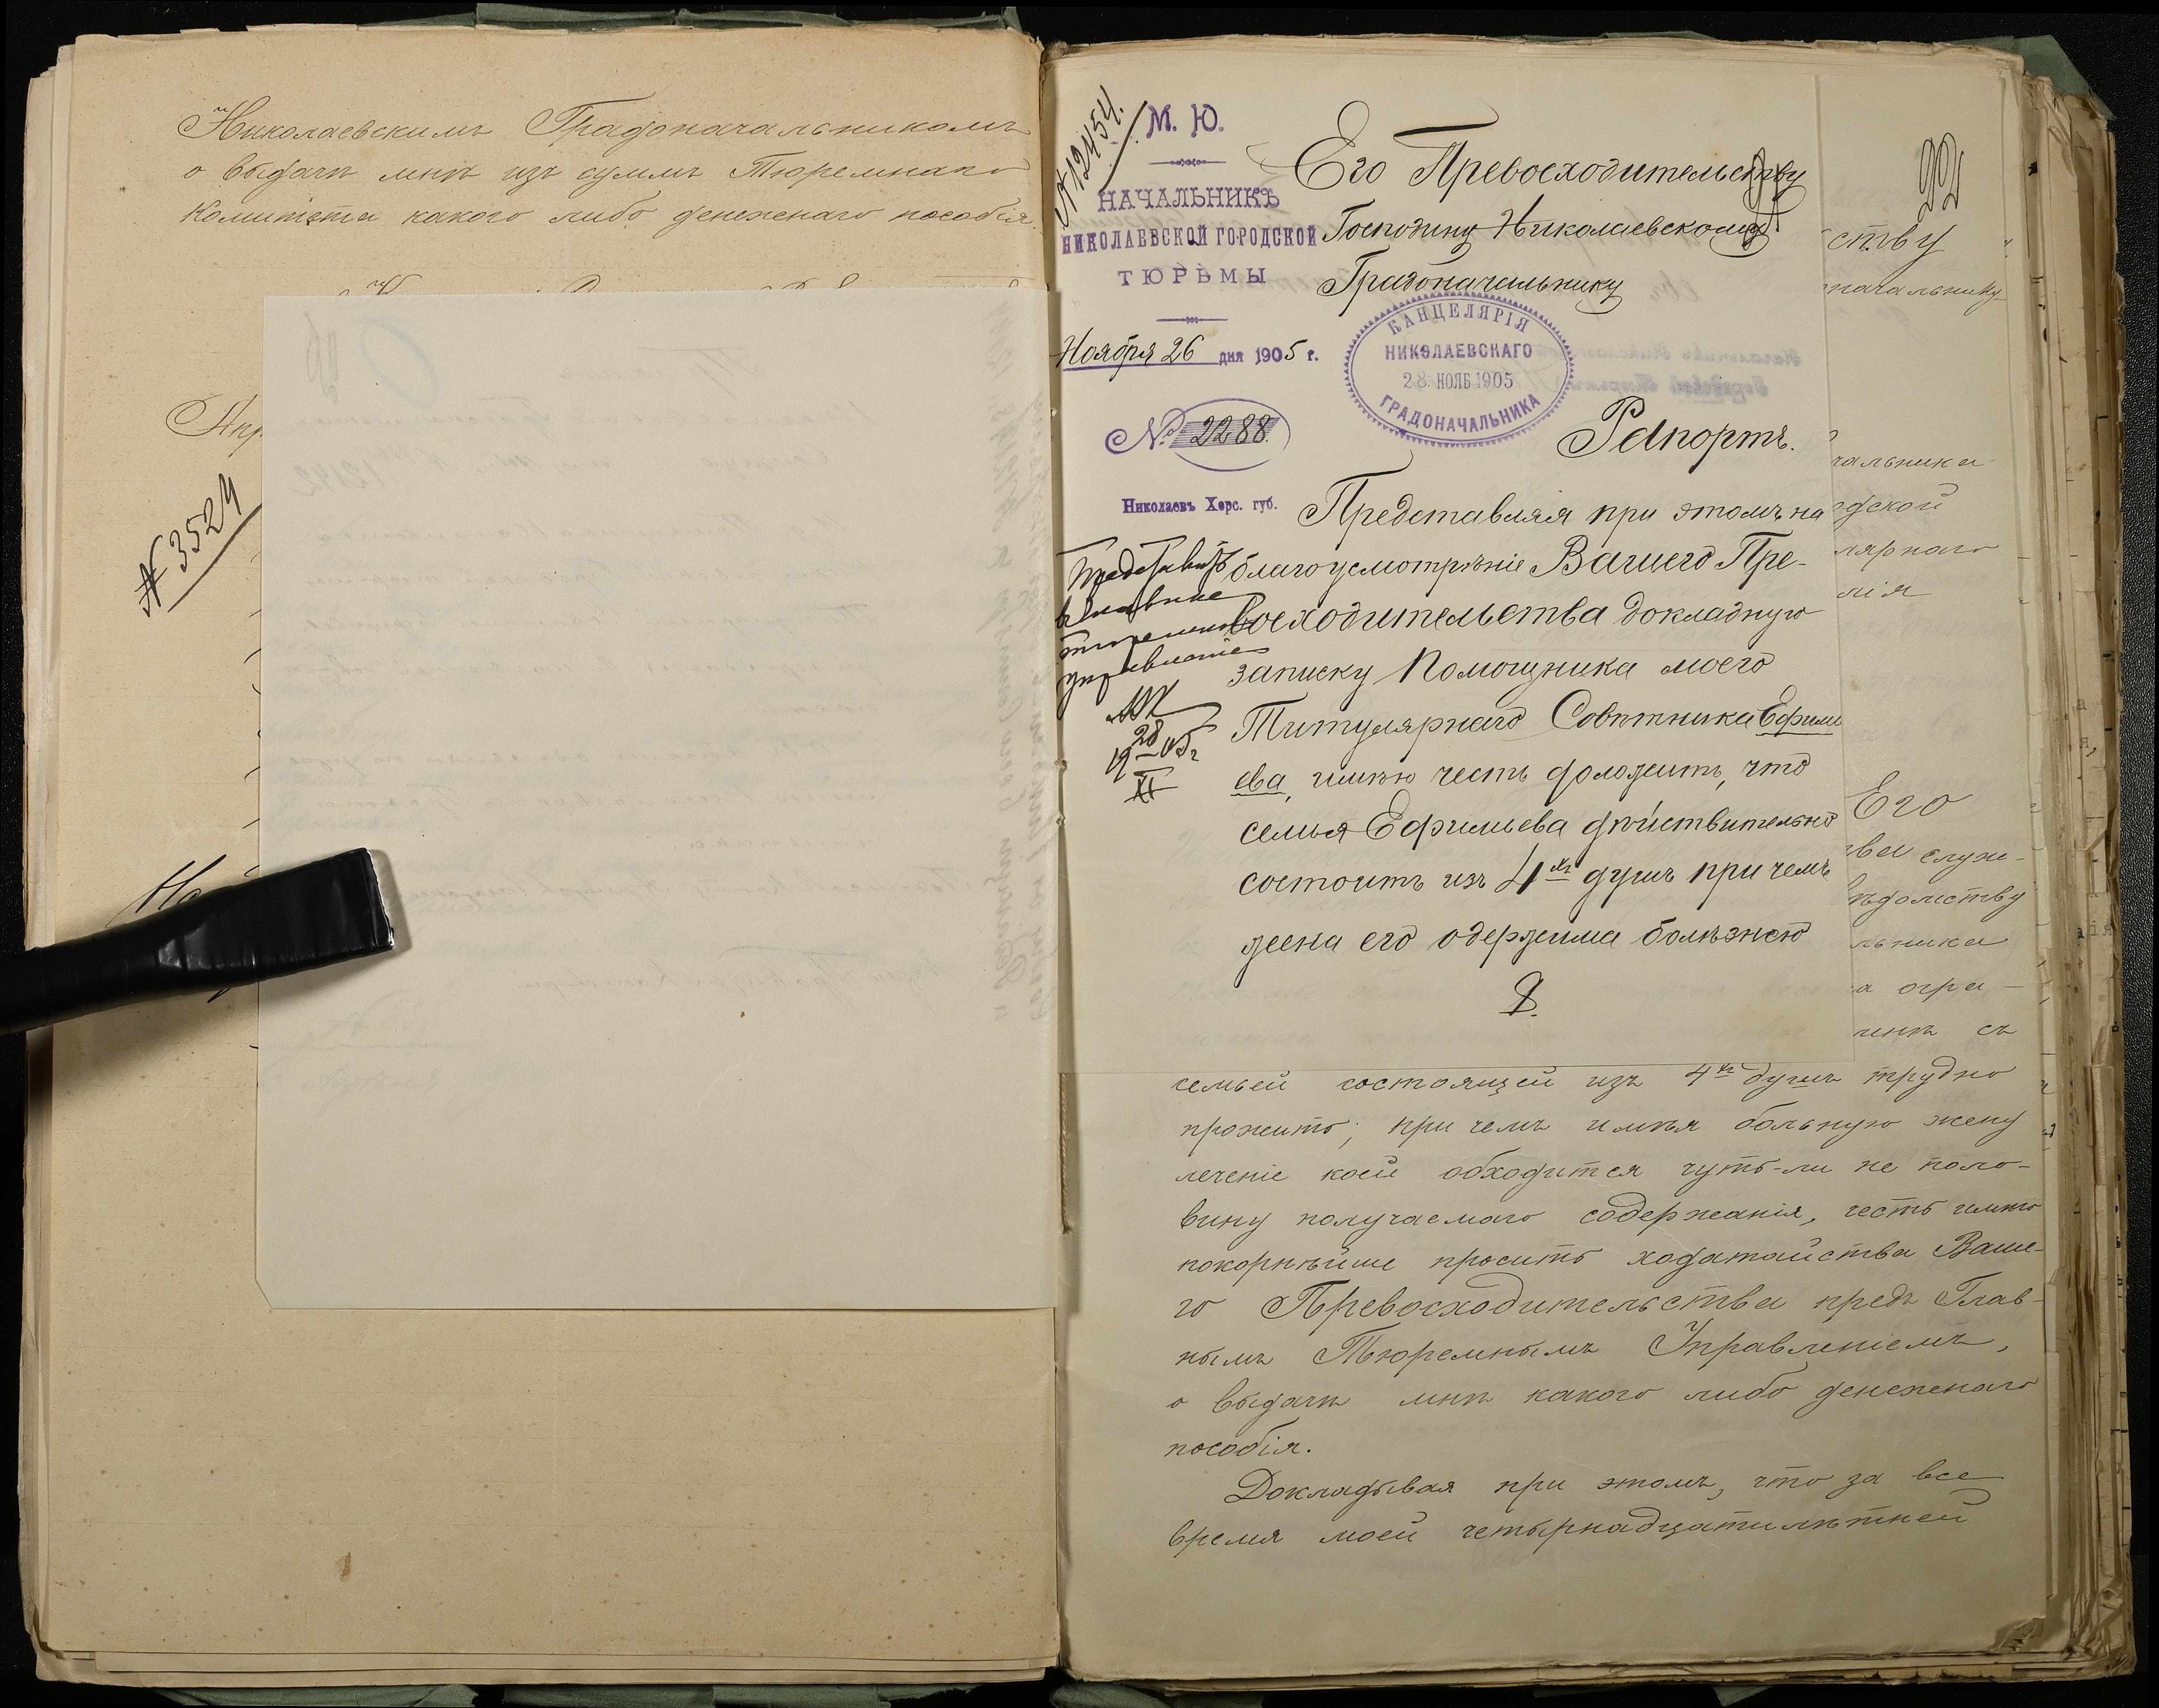 Николаевскимъ Градоначальникомъ
о выдачѣ мнѣ изъ суммъ Тюремнаго
Комитета какого либо денежнаго пособія.
№ 3524
№ 12454.
М. Ю.
НАЧАЛЬНИКЪ
НИКОЛАЕВСКОЙ ГОРОДСКОЙ
ТЮРЬМЫ
Ноября 26 дня 1905 г.
№ 2288.
Николаевъ Херс. губ.
Представить
въ Главное
тюремное
управленіе
28
19 — 05 г
XI
Его Превосходительству
Господину Николаевскому
Градоначальнику
КАНЦЕЛЯРІЯ
НИКОЛАЕВСКАГО
28. НОЯБ 1905
ГРАДОНАЧАЛЬНИКА
Рапортъ.
Представляя при этомъ на
благоусмотрѣніе Вашего Пре-
восходительства докладную
записку Помощника моего
Титулярнаго Совѣтника Ефимь
ева, имѣю честь доложить, что
семья Ефимьева дѣйствительно
состоитъ изъ 4хъ душъ при чемъ
жена его одержима болѣзнею
22
ству
начальнику
чальника
одской
лярнаго
лія
Его
ва служ-
ѣдомству
льника
а огра-
ченъ съ
семьей состоящей изъ 4хъ душъ трудно
прожить; при чемъ имѣя больную жену
леченіе коей обходится чуть-ли не поло-
вину получаемаго содержанія, честь имѣю
покорнѣйше просить ходатайства Ваше-
го Превосходительства предъ Глав-
нымъ Тюремнымъ Управленіемъ,
о выдачѣ мнѣ какого либо денежнаго
пособія.
Докладывая при этомъ, что за все
время моей четырнадцатилѣтней